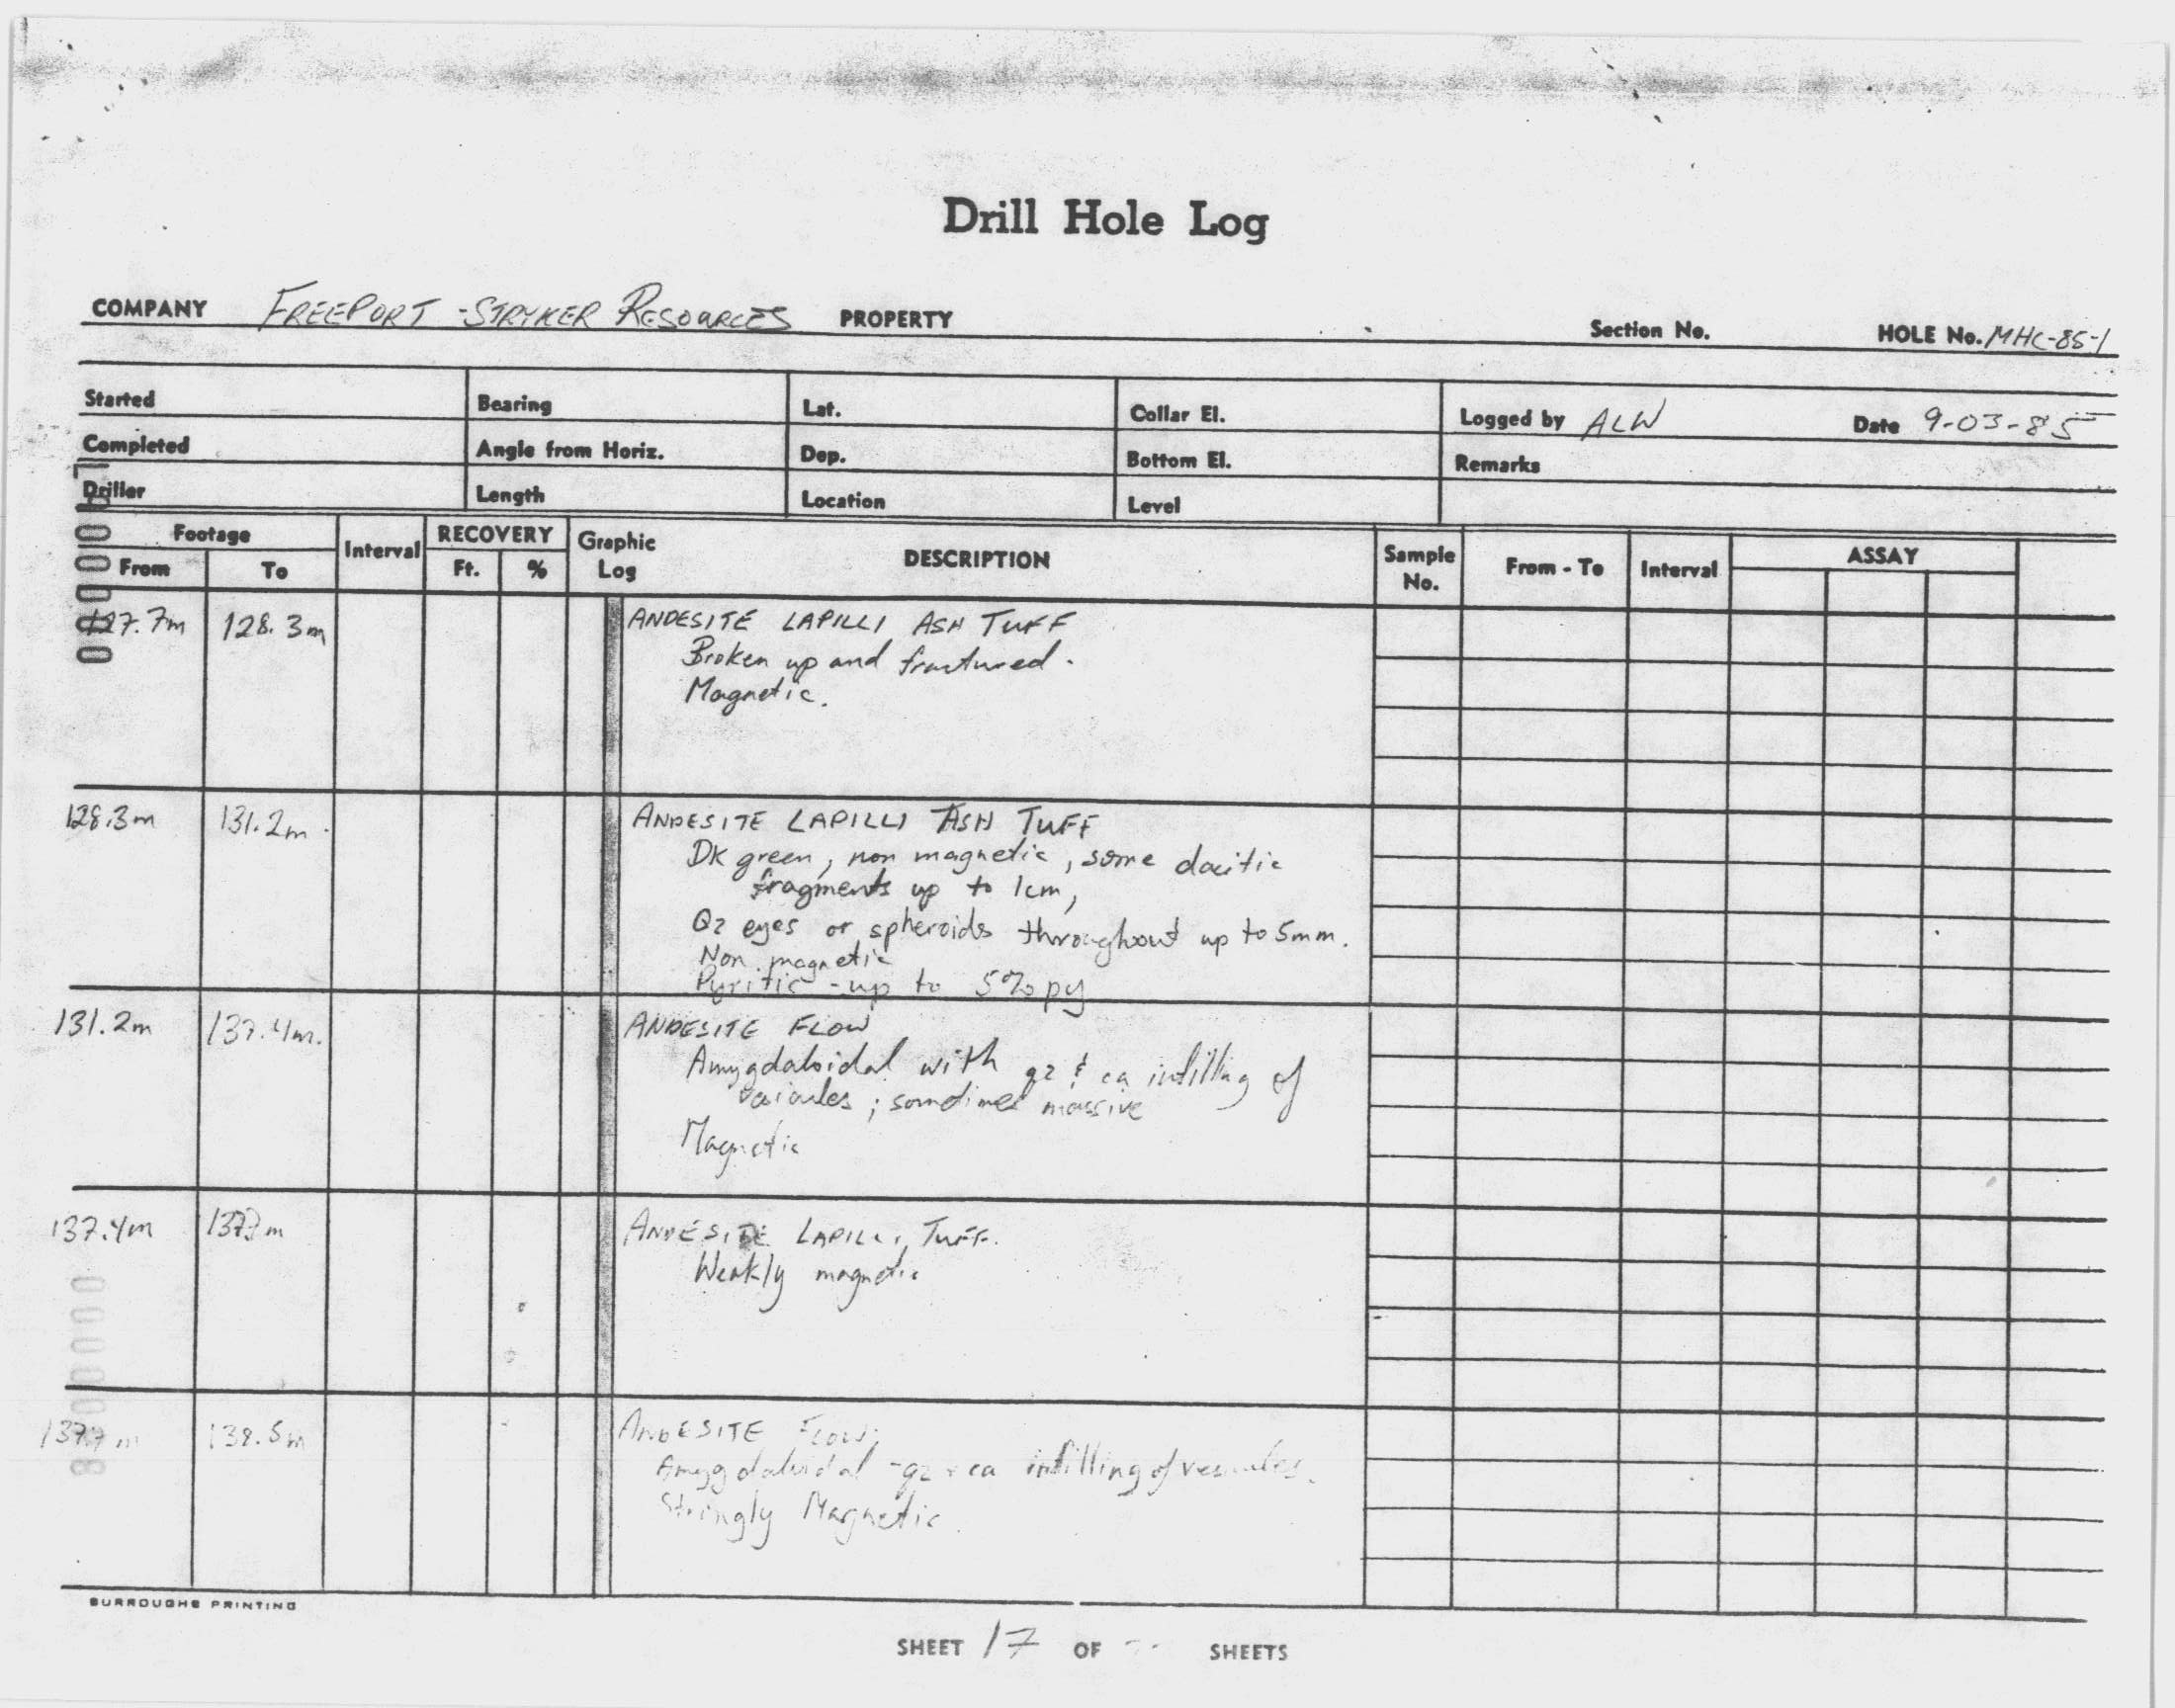 Drill Hole Log
COMPANY FREEPORT - STRYKER RESOURCES PROPERTY Section No. HOLE No. MHC-85-1
Started Bearing Lat. Collar El. Logged by ALW Date 9-03-85
Completed Angle from Horiz. Dep. Bottom El. Remarks
Driller Length Location Level
Footage Interval RECOVERY Graphic Log DESCRIPTION Sample No. From - To Interval ASSAY
From To Ft. %
127.7m 128.3m ANDESITE LAPILLI ASH TUFF
Broken up and fractured.
Magnetic.
128.3m 131.2m ANDESITE LAPILLI ASH TUFF
DK green, non magnetic, some dacitic
fragments up to 1cm,
Qz eyes or spheroids throughout up to 5mm.
Non magnetic
Pyritic - up to 5% py
131.2m 137.4m. ANDESITE FLOW
Amygdaloidal with qz & ca infilling of
; sometimes massive
Magnetic
137.4m 137.7m ANDESITE LAPILLI TUFF.
Weakly magnetic
137.7m 138.5m ANDESITE FLOW.
Amygdaloidal - qz + ca infilling of vesicules.
Strongly Magnetic.
BURROUGHS PRINTING
SHEET 17 OF SHEETS